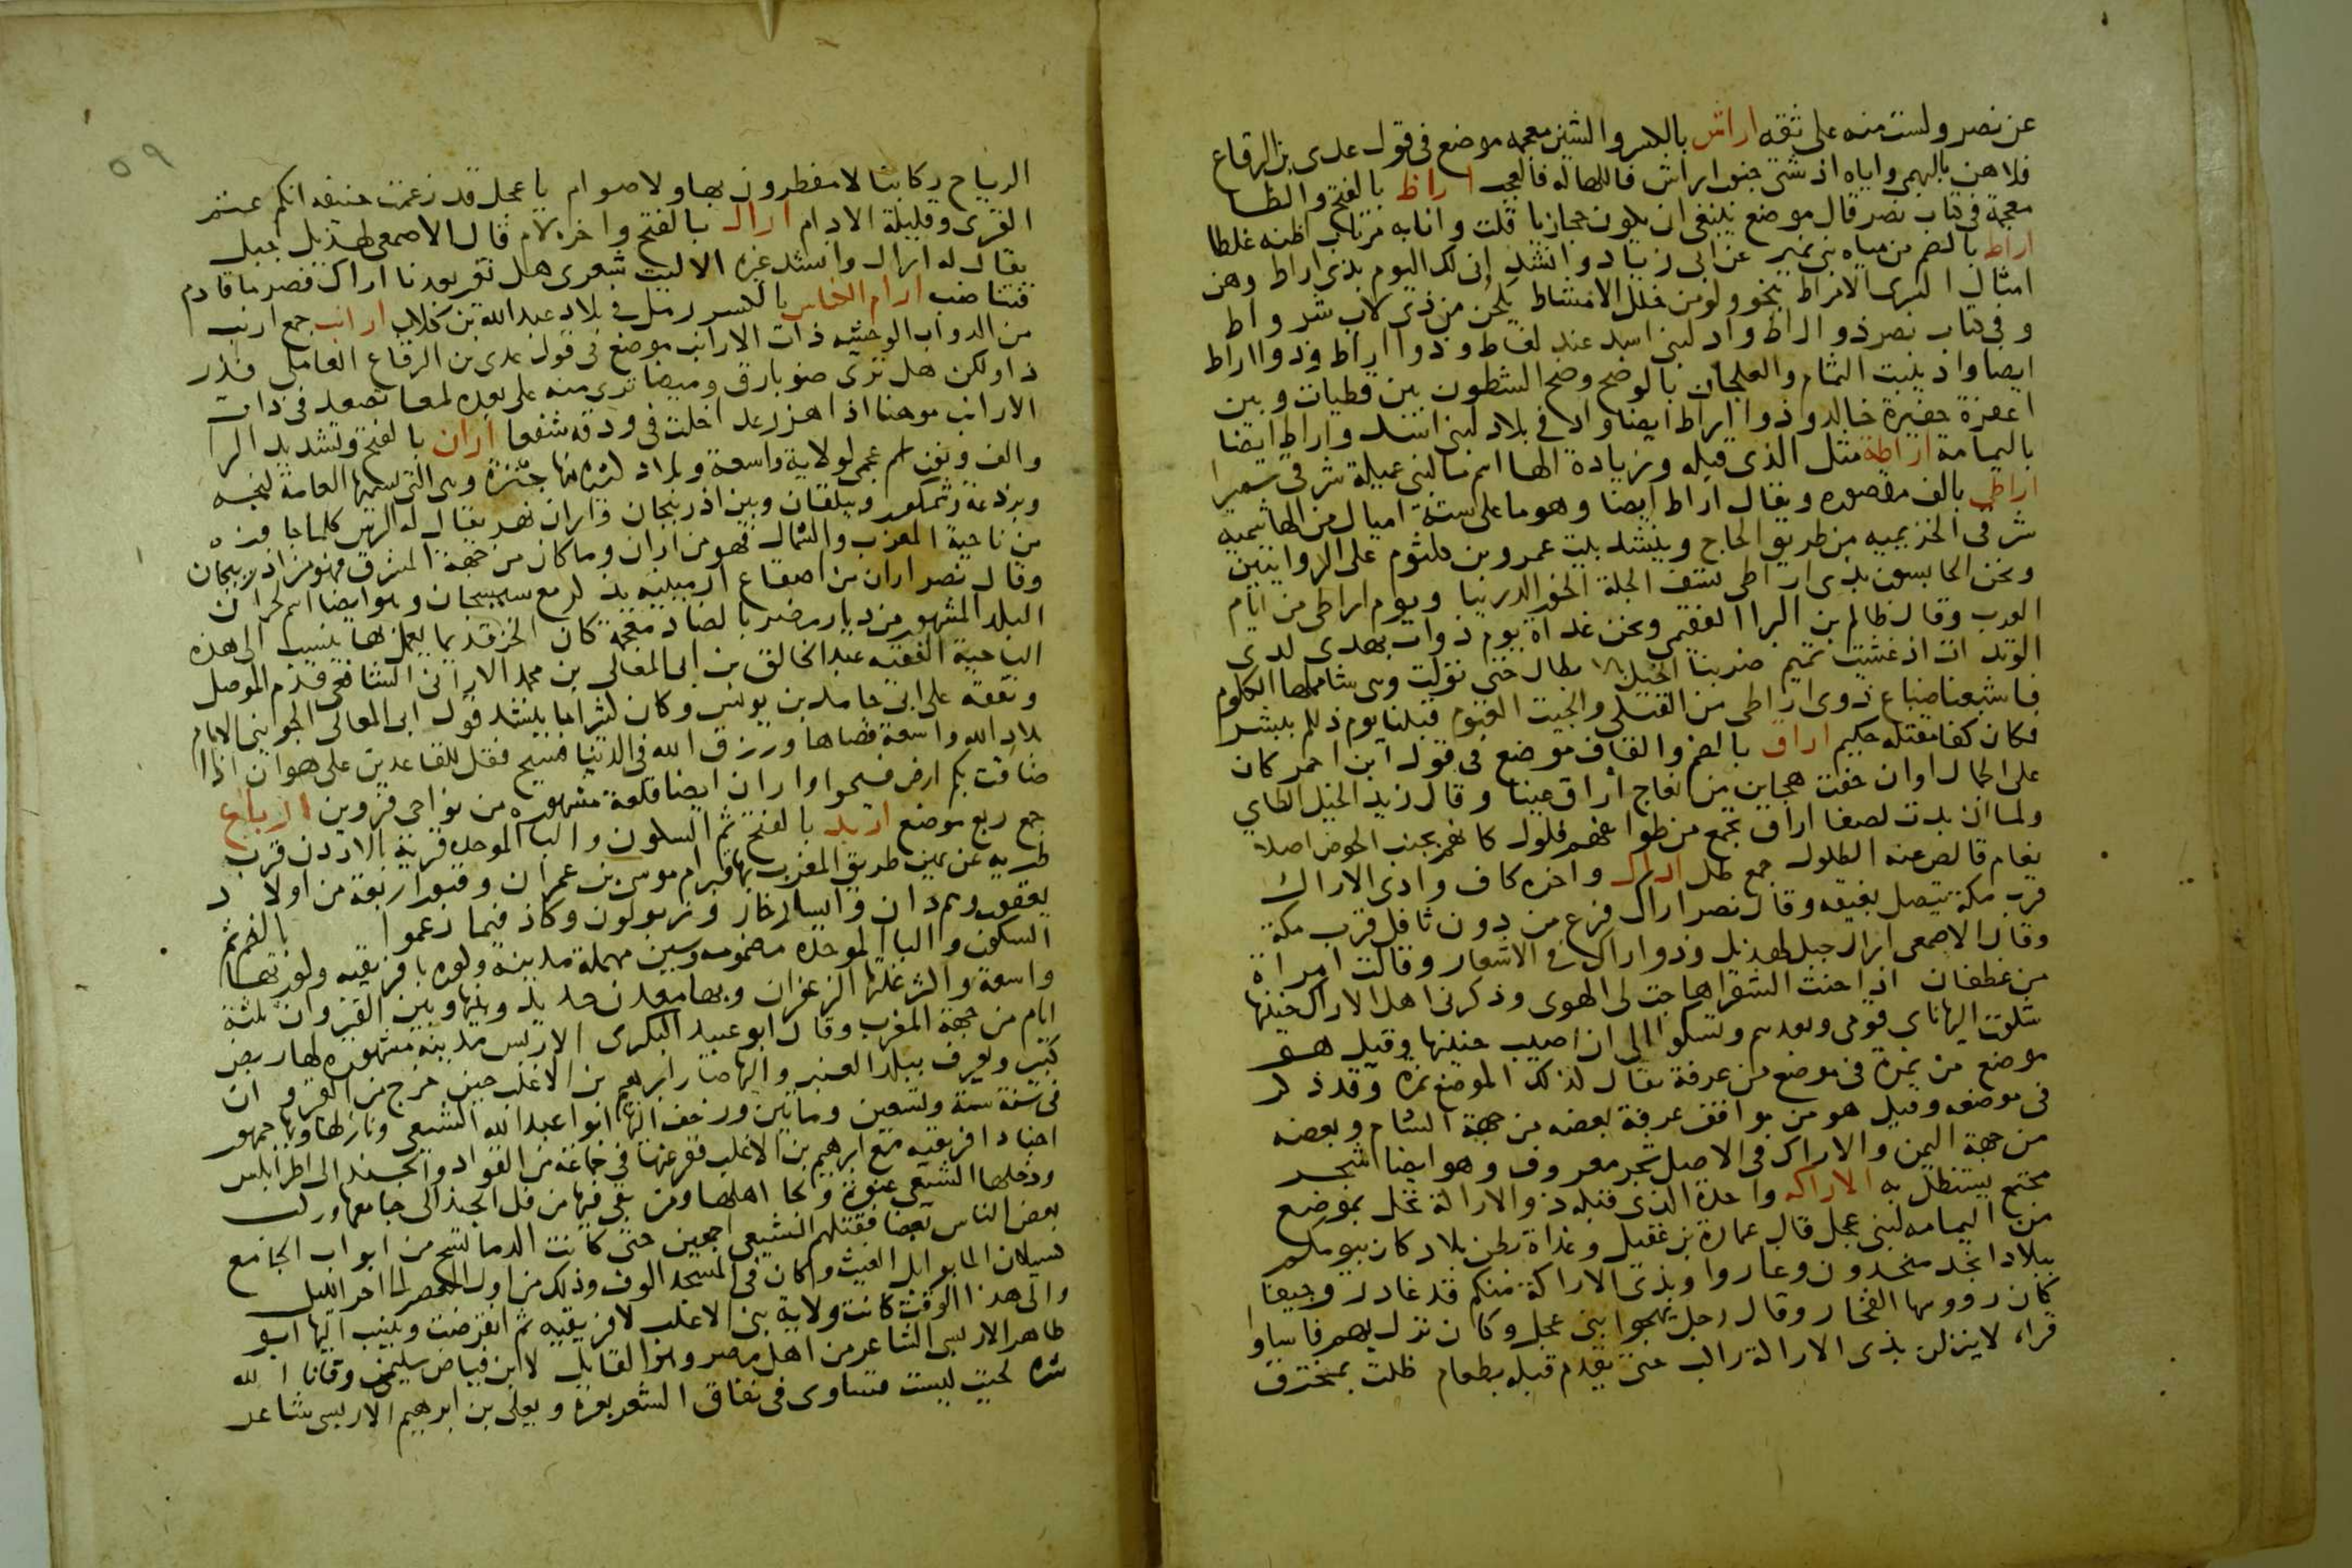 عن نصر ولست منه على ثقه اراش بالكسر والشين معجمه موضع فى قول عدى بن الرقاع
فلا هن بالبهمى واياه اذ شتى جنوب اراش فاللهاله فالعجب اراظ بالفتح والظا
معجمة فى كتاب نصر قال موضع ينبغى ان يكون حجازيا قلت وانا به مرتاب اظنه غلطا
اراط بالضم من مياه بنى نمير عن ابى زياد وانشد انى لك اليوم بذى اراط وهن
امثال السرى الامراط تنجو ولو من خلل الامشاط يلحن من ذى لاب شرواط
وفى كتاب نصر ذو اراط واد لبنى اسد عند لغاط وذوا اراط وذوا اراط
ايضا واد ينبت الثمام والعلجان بالوضح وضح الشطون بين قطيات وبين
حفيرة خالد وذوا اراط ايضا واد فى بلاد لبنى اسد واراط ايضا
باليمامة اراطة مثل الذى قبله وزيادة الها اسم ما لبنى عميلة شرقى سميرا
اراطى بالف مقصوره ويقال اراط ايضا وهو ما على ستة اميال من الهاشميه
شرقى الخزيميه من طريق الحاج وينشد بيت عمرو بن كلثوم على الروايتين
ونحن الحابسون بذى اراطى تسف الجلة الخور الدرينا ويوم اراطى من ايام
العرب وقال ظالم بن البرا الفقيمى ونحن غداة يوم ذوات بهدى لدى
الوتدات اذ غشيت تميم ضربنا الخيل بالابطال حتى تولت وهى شاملها الكلوم
فاشبعنا ضباع ذوى اراطى من القتلى والجيت الغنوم قتلنا يوم ذلكم ببشر
فكان كفا مقتله حكيم اراق بالضم والقاف موضع فى قول ابن احمر كان
على الجمال اوان خفت هجاين من نعاج اراق عينا وقال زيد الخيل الطاي
ولما ان بدت لصفا اراق تجمع من طوايفهم فلول كانهم بجنب الحوض اصلا
نعام قالص عنه الظلول جمع ظل اراك واخره كاف وادى الاراك
قرب مكة يتصل بغيقه وقال نصر اراك فرع من دون ثافل قرب مكة
وقال الاصمعى اراك جبل لهذيل وذو اراك فى الاشعار وقالت امراة
من غطفان اذا حنت الشقرا هاجت لى الهوى وذكرنى اهل الاراك حنينها
شكوت اليها ناى قومى وبعدهم وتشكوا الى ان اصيب جنينها وقيل هو
موضع من نمرة فى موضع من عرفة يقال لذلك الموضع نمرة وقد ذكر
فى موضعه وقيل هو من مواقف عرفة بعضه من جهة الشام وبعضه
من جهة اليمن والاراك فى الاصل شجر معروف وهو ايضا شجر
مجتمع يستظل به الاراكه واحدة الذى قبله ذو الاراكة نخل بموضع
من اليمامه لبنى عجل قال عمارة بن عقيل وغداة بطن بلاد كان بيوتكم
ببلاد انجد منجدون وغاروا وبذى الاراكة منكم قد غادروا جيفا
كان رووسها الفخار وقال رجل يهجوا بنى عجل وكان نزل بهم فاساوا
قراه لا ينزلن بذى الاراكة راكب حتى يقدم قبله بطعام ظلت بمخترق
٥٩
الرياح ركابنا لا مفطرون بها ولا صوام يا عجل قد زعمت حنيفه انكم عتم
القرى وقليلة الادام ارال بالفتح واخره لام قال الاصمعى لهذيل جبل
يقال له ارال وانشد غيره الا ليت شعرى هل تغير بعدنا اراك فصرما قادم
فتناضب ارام الخاس بالكسر رمل فى بلاد عبد الله بن كلاب ارانب جمع ارنب
من الدواب الوحشيه ذات الارانب موضع فى قول عدى بن الرقاع العاملى فذر
ذا ولكن هل ترى ضو بارق وميضا ترى منه على بعده لمعا تصعد فى ذات
الارانب موهنا اذا هز رعد اخلت فى ودقه شفعا اران بالفتح وتشديد الرا
والف ونون اسم عجمى لولاية واسعة وبلاد كثيرة منها جنزة وهى التى تسميها العامة كنجه
وبرذعة وشمكور وبيلقان وبين اذربيجان واران نهر يقال له الرس كلما جاوزه
من ناحية المغرب والشمال فهو من اران وما كان من جهة المشرق فهو من اذربيجان
وقال نصر اران من اصقاع ارمينيه يذكر مع سيسجان وهو ايضا اسم لحران
البلد المشهور من ديار مضر بالضاد معجمة كان الخز قديما يعمل بها ينسب الى هذه
الناحية الفقيه عبد الخالق بن ابى المعالى بن محمد الارانى الشافعى قدم الموصل
وتفقه على ابى حامد بن يونس وكان كثيرا ما ينشد قول ابى المعالى الجوينى الامام
بلاد الله واسعة فضاها ورزق الله فى الدنيا فسيح فقل للقاعدين على هوان اذا
ضاقت بكم ارض فسيحوا واران ايضا قلعة مشهوره من نواحى قزوين ارباع
جمع ربع موضع اربد بالفتح ثم السكون والبا الموحده قرية بالاردن قرب
طبريه عن يمين طريق المغرب بها قبر ام موسى بن عمران وقبور اربعة من اولاد
يعقوب وهم دان وايساخار وزبولون وكاذ فيما زعموا بالضم ثم
السكون والبا الموحده مضمومه وسين مهملة مدينة وكوره بافريقيه وكورتها
واسعة واكثر غلتها الزعفران وبها معدن حديد وبينها وبين القيروان ثلثة
ايام من جهة المغرب وقال ابو عبيد البكرى الاربس مدينة مشهوره لها ربض
كبير ويعرف ببلد العنبر واليها صار ابراهيم بن الاغلب حين خرج من القيروان
فى سنة ستة وتسعين ومايتين وزحف اليها ابوا عبد الله الشيعى ونازلها وبها جمهور
اجناد افريقيه مع ابراهيم بن الاغلب ففر عنها فى جماعة من القواد والجند الى اطرابلس
ودخلها الشيعى عنوة ولجا اهلها ومن بقى فيها من فل الجند الى جامعها وركب
بعض الناس بعضا فقتلهم الشيعى اجمعين حتى كانت الدما تسح من ابواب الجامع
كسيلان الما بوابل الغيث وكان فى المسجد الوف وذلك من اول العصر الى اخر الليل
والى هذا الوقت كانت ولاية بنى الاغلب لافريقيه ثم انقرضت وينسب اليها ابو
طاهر الاربسى الشاعر من اهل مصر وهو القايل لابن فياض سليمن وقانا الله
شره لحيت ليست تساوى فى نفاق الشعر بعره ويعلى بن ابرهيم الاربسى شاعر